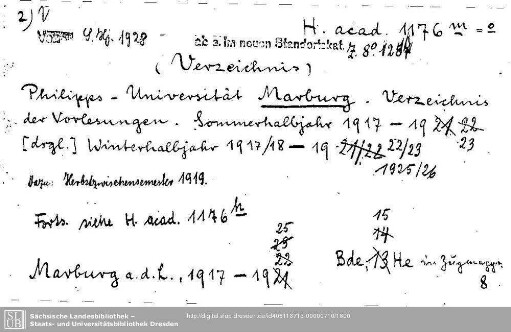 2) V
S. Hj. 1928
H. acad. 1176 m = o
ab s. im neuen Standortskat.
Z. 8° 1284
(Verzeichnis)
Philipps-Universität Marburg. Verzeichnis
der Vorlesungen. Sommerhalbjahr 1917 - 19 21 22
23
[drgl.] Winterhalbjahr 1917/18 - 19 21/22 22/23
1925/26
Dazu: Herbstzwischensemester 1919.
Forts. siehe H. acad. 1176 n
25
23
22
15
14
Marburg a.d.L., 1917 - 1921
Bde, 13 He in Zugmapp.
8
Sächsische Landesbibliothek –
Staats- und Universitätsbibliothek Dresden